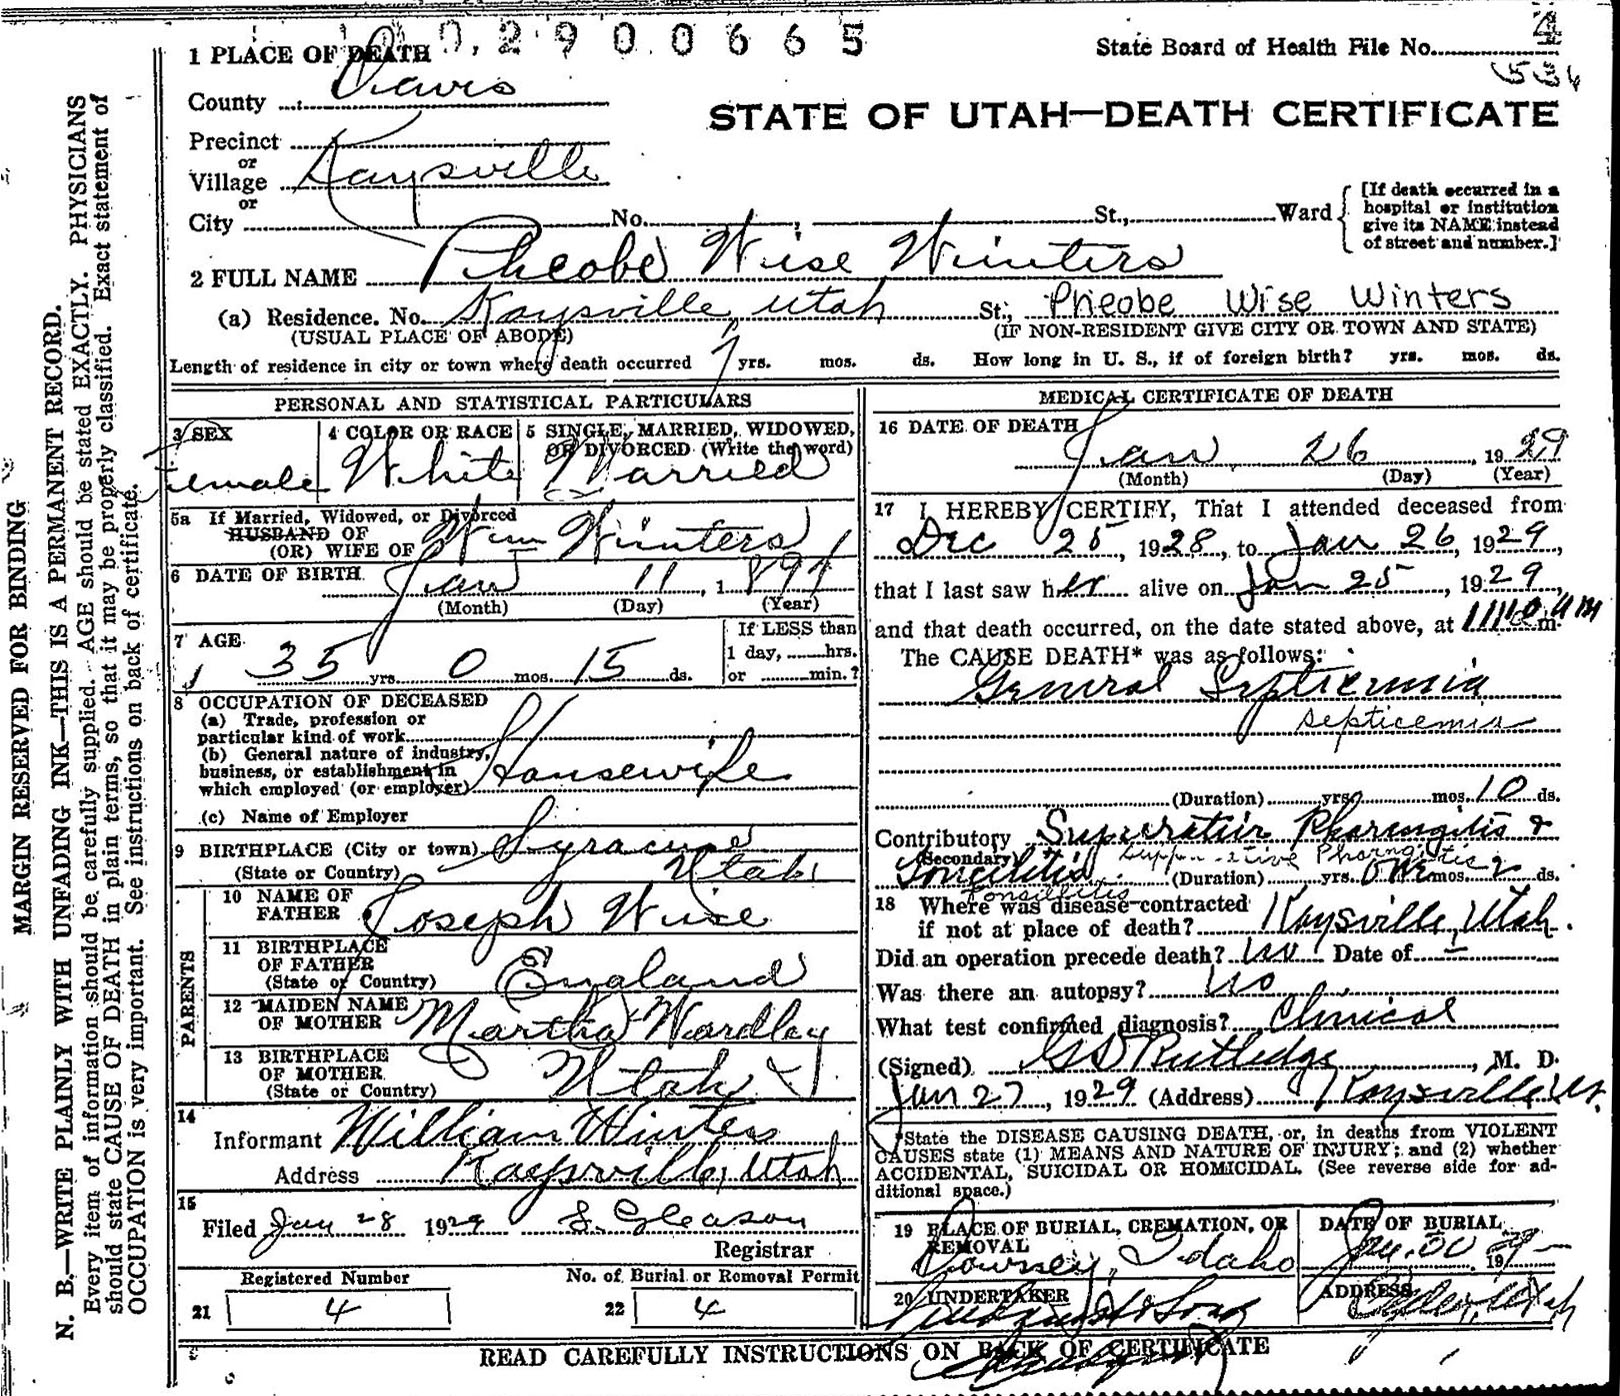 0,2900665
1 PLACE OF DEATH
State Board of Health File No. 4
536
County Davis
STATE OF UTAH—DEATH CERTIFICATE
Precinct
or
Village Kaysville
or
City No. St., Ward
[If death occurred in a
hospital or institution
give its NAME instead
of street and number.]
2 FULL NAME Pheobe Wise Winters
(a) Residence. No. Kaysville, Utah St; Pheobe Wise Winters
(USUAL PLACE OF ABODE) (IF NON-RESIDENT GIVE CITY OR TOWN AND STATE)
Length of residence in city or town where death occurred 7 yrs. mos. ds. How long in U. S., if of foreign birth? yrs. mos. ds.
PERSONAL AND STATISTICAL PARTICULARS
3 SEX
Female
4 COLOR OR RACE
White
5 SINGLE, MARRIED, WIDOWED,
OR DIVORCED (Write the word)
Married
5a If Married, Widowed, or Divorced
HUSBAND OF
(OR) WIFE OF Wm Winters
6 DATE OF BIRTH Jan 11, 1894
(Month) (Day) (Year)
7 AGE
35 yrs 0 mos. 15 ds.
If LESS than
1 day, hrs.
or min.?
8 OCCUPATION OF DECEASED
(a) Trade, profession or
particular kind of work
(b) General nature of industry,
business, or establishment in
which employed (or employer) Housewife
(c) Name of Employer
9 BIRTHPLACE (City or town) Syracuse
(State or Country) Utah
PARENTS
10 NAME OF
FATHER Joseph Wise
11 BIRTHPLACE
OF FATHER
(State or Country) England
12 MAIDEN NAME
OF MOTHER Martha Wardley
13 BIRTHPLACE
OF MOTHER
(State or Country) Utah
14
Informant William Winters
Address Kaysville, Utah
15
Filed Jan 28 1929 S. Gleason
Registrar
Registered Number
21 4
No. of Burial or Removal Permit
22 4
MEDICAL CERTIFICATE OF DEATH
16 DATE OF DEATH
Jan 26, 1929
(Month) (Day) (Year)
17 I HEREBY CERTIFY, That I attended deceased from
Dec 25, 1928, to Jan 26, 1929,
that I last saw her alive on Jan 25, 1929,
and that death occurred, on the date stated above, at m.
The CAUSE DEATH* was as follows:
General Septicemia
septicemia
(Duration) yrs mos. 10 ds.
Contributory Supurative Pharengitis &
(Secondary) Suppurative Pharngitis
Tonsilitis (Duration) yrs. One mos. 2 ds.
Tonsillitis
18 Where was disease contracted
if not at place of death? Kaysville, Utah.
Did an operation precede death? no Date of —
Was there an autopsy? no
What test confirmed diagnosis? Clinical
(Signed) G D Rutledge, M. D.
Jan 27, 1929 (Address) Kaysville Ut.
*State the DISEASE CAUSING DEATH, or, in deaths from VIOLENT
CAUSES state (1) MEANS AND NATURE OF INJURY; and (2) whether
ACCIDENTAL, SUICIDAL OR HOMICIDAL. (See reverse side for ad-
ditional space.)
19 PLACE OF BURIAL, CREMATION, OR
REMOVAL
Downey, Idaho
DATE OF BURIAL
Jan. 30 1929
20 UNDERTAKER
ADDRESS
Utah
READ CAREFULLY INSTRUCTIONS ON BACK OF CERTIFICATE
MARGIN RESERVED FOR BINDING
N. B.—WRITE PLAINLY WITH UNFADING INK—THIS IS A PERMANENT RECORD.
Every item of information should be carefully supplied. AGE should be stated EXACTLY. PHYSICIANS
should state CAUSE OF DEATH in plain terms, so that it may be properly classified. Exact statement of
OCCUPATION is very important. See instructions on back of certificate.